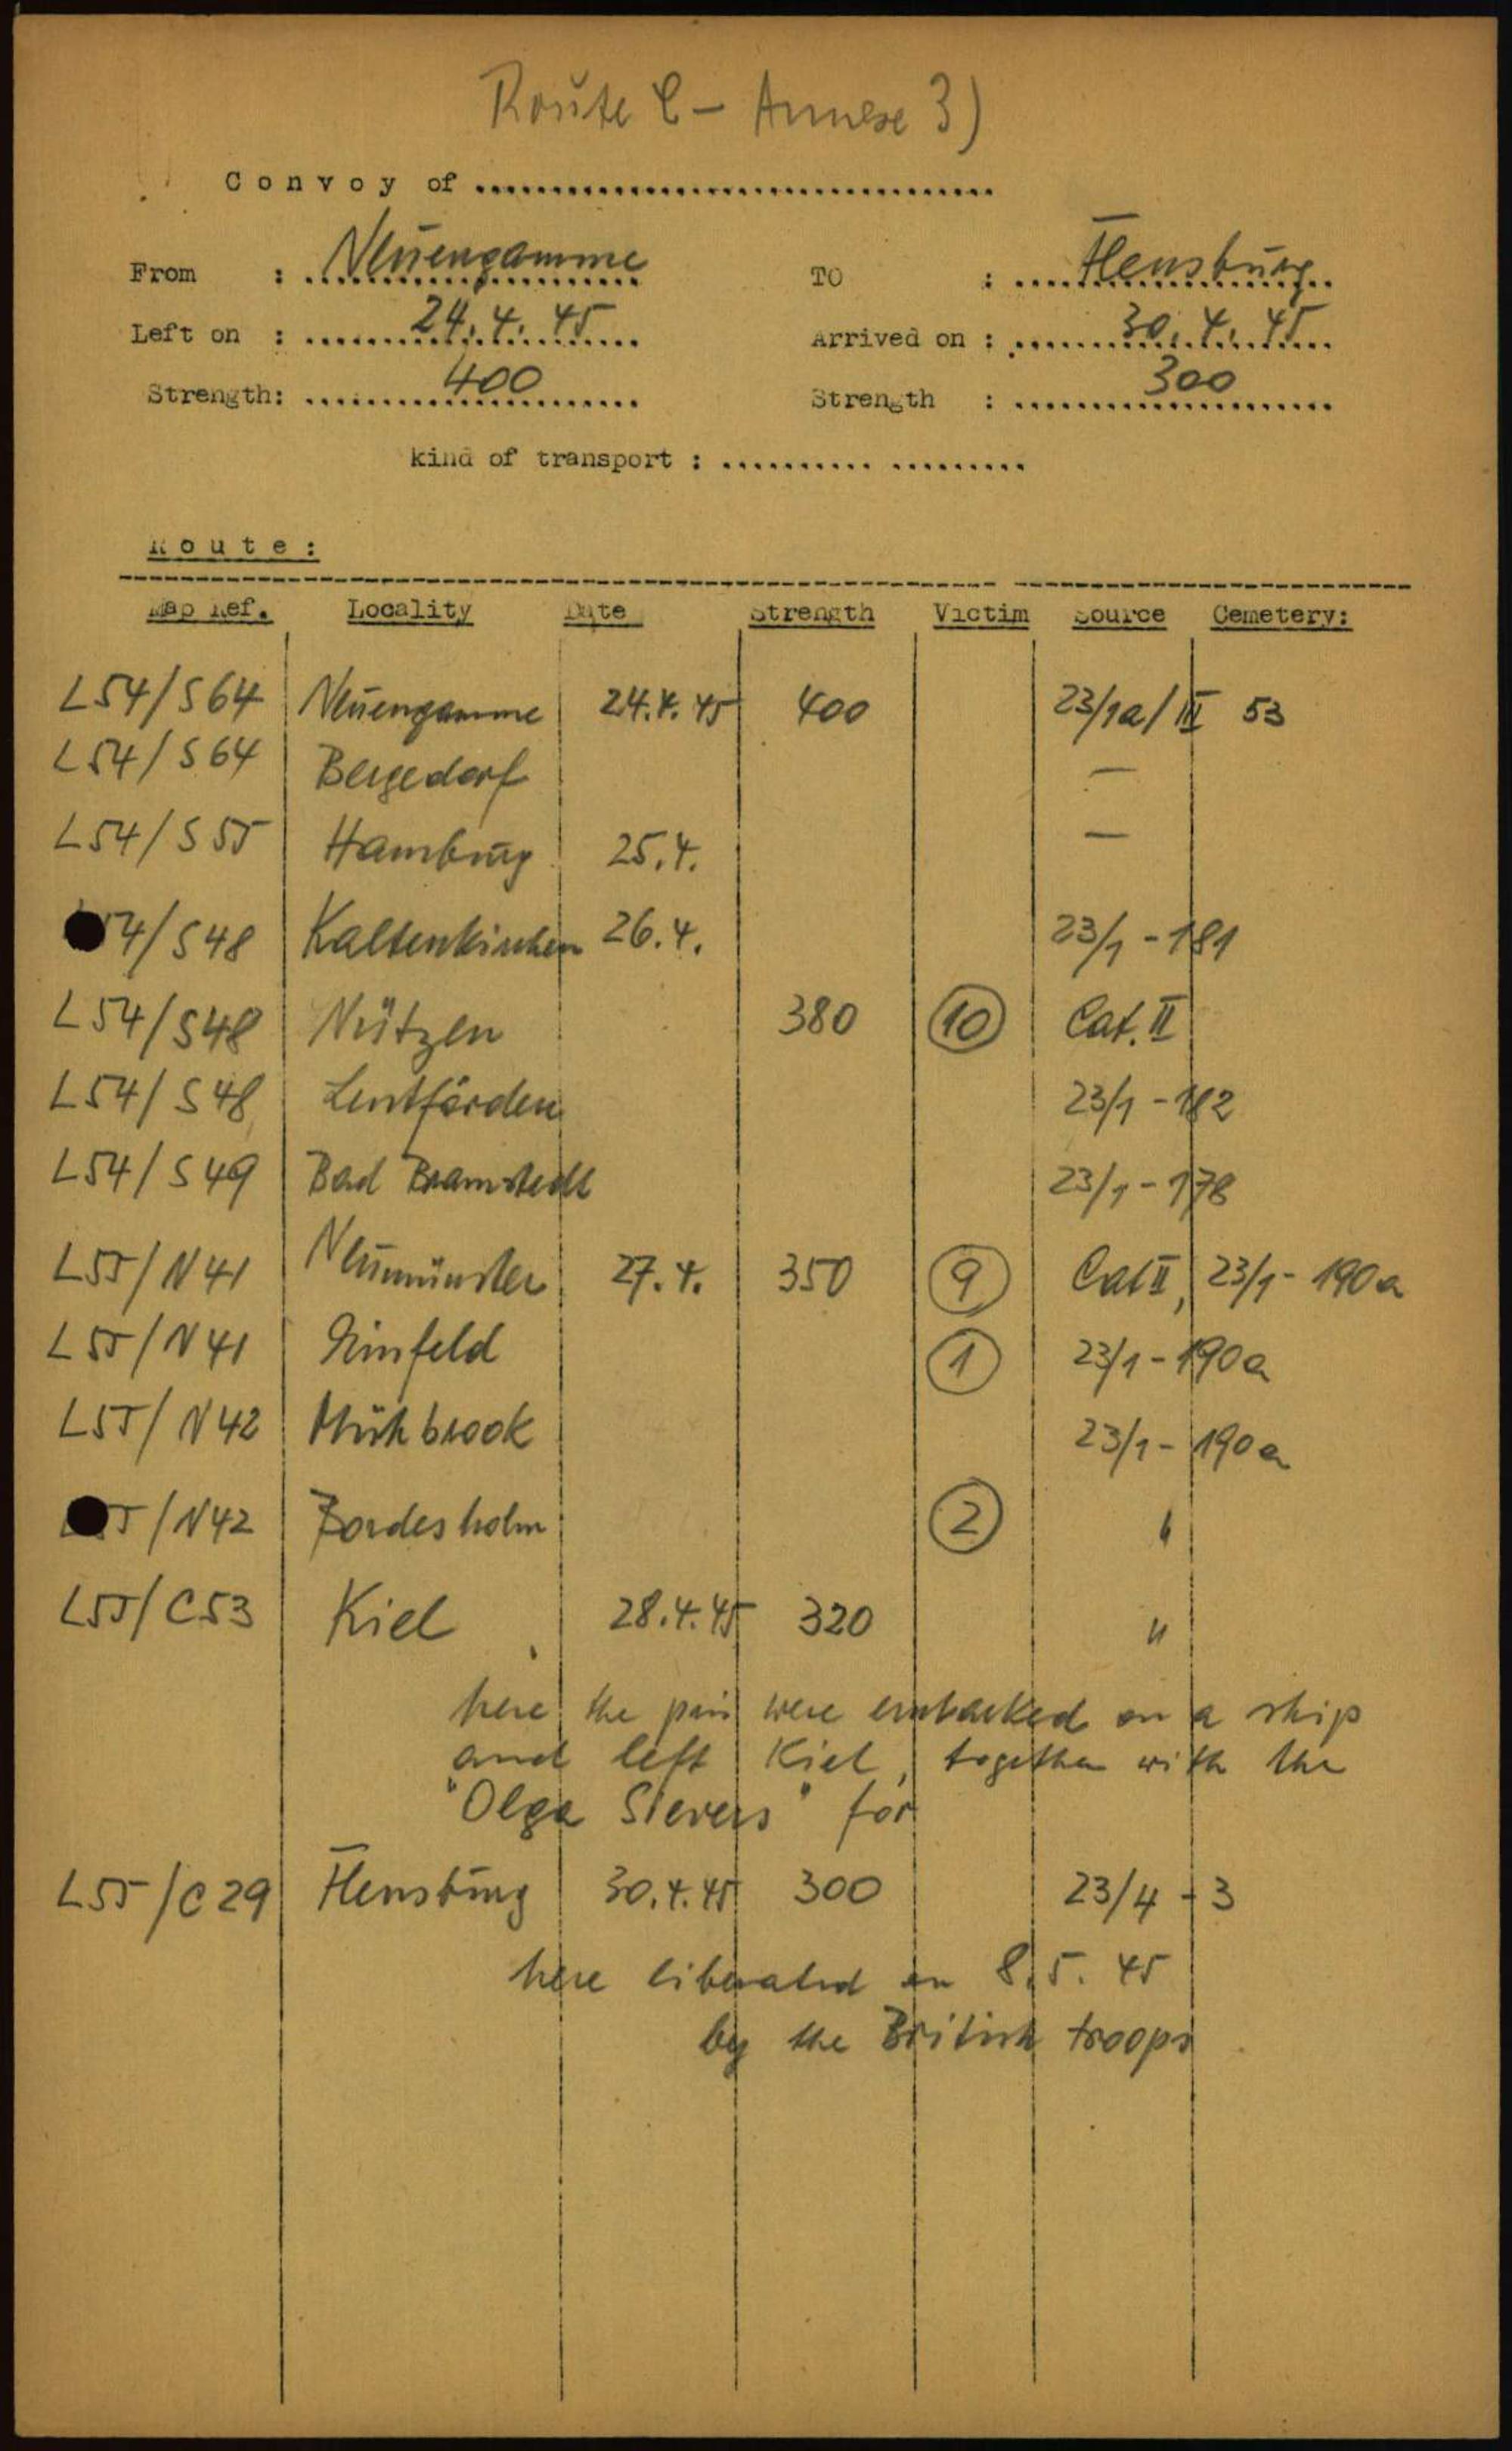 Route C - Annexe 3)
Convoy of ..................................
From : Neuengamme TO : Flensburg
Left on : 24.4.45 Arrived on : 30.4.45
Strength: 400 Strength : 300
kind of transport : .......... .........
Route:
Map Ref. Locality Date Strength Victim Source Cemetery:
L54/S64 Neuengamme 24.4.45 400 23/1a/III 53
L54/S64 Bergedorf —
L54/S55 Hamburg 25.4. —
4/S48 Kaltenkirchen 26.4. 23/1-181
L54/S48 Nützen 380 10 Cat. II
L54/S48 Lentförden 23/1-182
L54/S49 Bad Bramstedt 23/1-178
L55/N41 Neumünster 27.4. 350 9 Cat II, 23/1-190a
L55/N41 Einfeld 1 23/1-190a
L55/N42 Mühbrook 23/1-190a
5/N42 Bordesholm 2 "
L55/C53 Kiel 28.4.45 320 "
here the pris were embarked on a ship
and left Kiel, together with the
"Olga Sievers" for
L55/C29 Flensburg 30.4.45 300 23/4-3
here liberated on 8.5.45
by the British troops